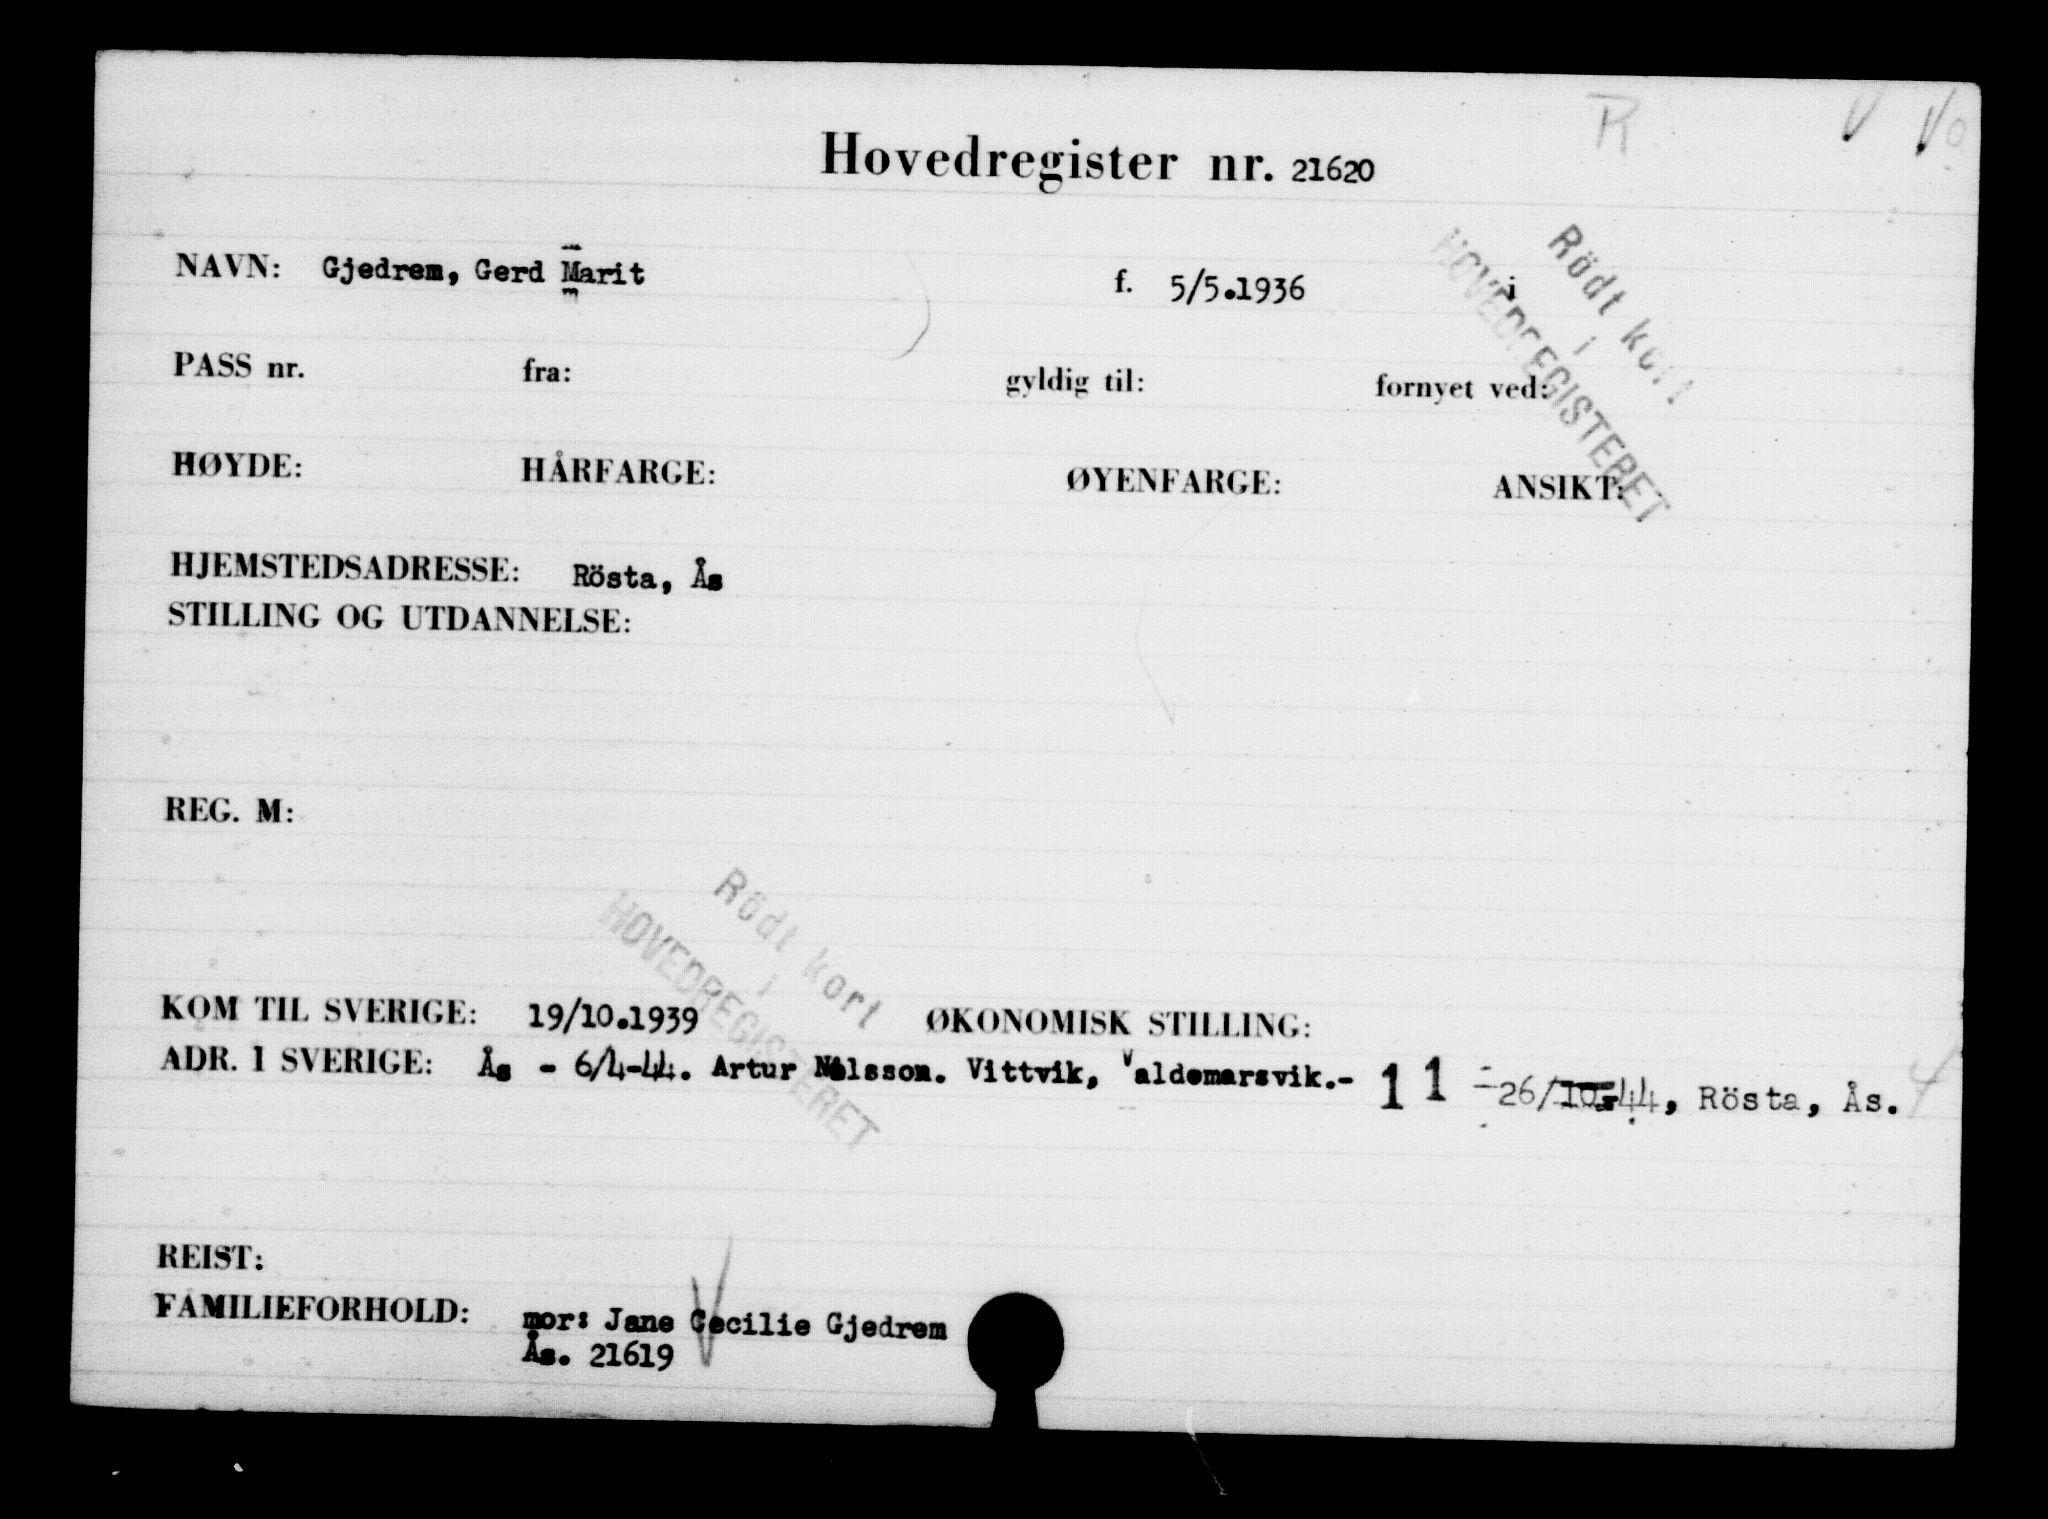 R V V o
Hovedregister nr. 21620
NAVN: Gjedrem, Gerd Marit f. 5/5.1936 i
Rödt kort
i
HOVEDREGISTERET
PASS nr. fra: gyldig til: fornyet ved:
HØYDE: HÅRFARGE: ØYENFARGE: ANSIKT:
HJEMSTEDSADRESSE: Rösta, Ås
STILLING OG UTDANNELSE:
REG. M:
Rödt kort
i
HOVEDREGISTERET
KOM TIL SVERIGE: 19/10.1939 ØKONOMISK STILLING:
ADR. I SVERIGE: Ås - 6/4-44. Artur Nilsson. Vittvik, Valdemarsvik.- 11 -26/10-44, Rösta, Ås.
REIST:
FAMILIEFORHOLD: mor: Jane Cecilie Gjedrem
Ås. 21619